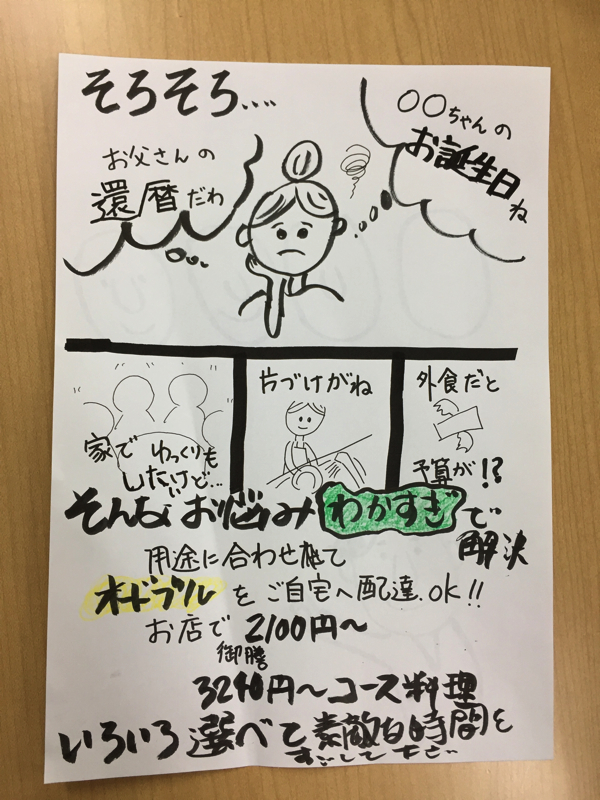 そろそろ....
〇〇ちゃんの
お誕生日ね
お父さんの
還暦だわ
家でゆっくりも
したいけど...
片づけがね
外食だと
予算が!?
そんなお悩みわかすぎで
解決
用途に合わせて
オードブルをご自宅へ配達.OK!!
お店で2100円〜
御膳
3240円〜コース料理
いろいろ選べて素敵な時間を
すごして下さい